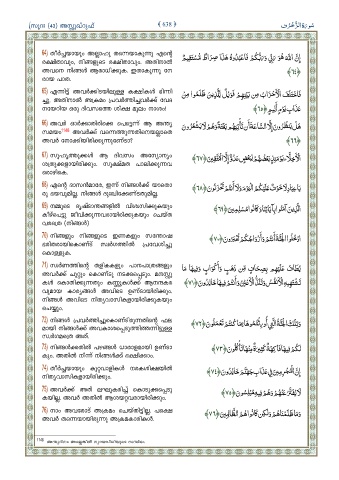 (സൂറ: (43) അസ്സുഖ്റുഫ്
﴾ 638 ﴿
سورة الزخرف
64) തീർച്ചയായും അല്ലാഹു തന്നെയാകുന്നു എന്റെ
രക്ഷിതാവും, നിങ്ങളുടെ രക്ഷിതാവും. അതിനാൽ
അവനെ നിങ്ങൾ ആരാധിക്കുക. ഇതാകുന്നു നേ
രായ പാത.
إِنَّ اللَّهَ هُوَ رَبِّي وَرَبُّكُمْ فَاعْبُدُوهُ هَٰذَا صِرَاطٌ مُّسْتَقِيمٌ
﴿٦٤﴾
65) എന്നിട്ട് അവർക്കിടയിലുള്ള കക്ഷികൾ ഭിന്നി
ച്ചു. അതിനാൽ അക്രമം പ്രവർത്തിച്ചവർക്ക് വേദ
നയേറിയ ഒരു ദിവസത്തെ ശിക്ഷ മൂലം നാശം!
فَاخْتَلَفَ الْأَحْزَابُ مِن بَيْنِهِمْ فَوَيْلٌ لِّلَّذِينَ ظَلَمُوا مِنْ
عَذَابِ يَوْمٍ أَلِيمٍ ﴿٦٥﴾
هَلْ يَنظُرُونَ إِلَّا السَّاعَةَ أَن تَأْتِيَهُم بَغْتَةً وَهُمْ لَا يَشْعُرُونَ
﴿٦٦﴾
67) സുഹൃത്തുക്കൾ ആ ദിവസം അന്യോന്യം
ശത്രുക്കളായിരിക്കും. സൂക്ഷ്മത പാലിക്കുന്നവ
രൊഴികെ.
الْأَخِلَّاءُ يَوْمَئِذٍ بَعْضُهُمْ لِبَعْضٍ عَدُوٌّ إِلَّا الْمُتَّقِينَ ﴿٦٧﴾
68) എന്റെ ദാസന്മാരേ, ഇന്ന് നിങ്ങൾക്ക് യാതൊ
രു ഭയവുമില്ല. നിങ്ങൾ ദുഃഖിക്കേണ്ടതുമില്ല.
يَا عِبَادِ لَا خَوْفٌ عَلَيْكُمُ الْيَوْمَ وَلَا أَنتُمْ تَحْزَنُونَ ﴿٦٨﴾
69) നമ്മുടെ ദൃഷ്ടാന്തങ്ങളിൽ വിശ്വസിക്കുകയും
കീഴ്പെട്ടു ജീവിക്കുന്നവരായിരിക്കുകയും ചെയ്ത
വരത്രെ (നിങ്ങൾ)
الَّذِينَ آمَنُوا بِآيَاتِنَا وَكَانُوا مُسْلِمِينَ ﴿٦٩﴾
70) നിങ്ങളും നിങ്ങളുടെ ഇണകളും സന്തോഷ
ഭരിതരായികൊണ്ട് സ്വർഗത്തിൽ പ്രവേശിച്ചു
കൊള്ളുക.
ادْخُلُوا الْجَنَّةَ أَنتُمْ وَأَزْوَاجُكُمْ تُحْبَرُونَ ﴿٧٠﴾
71) സ്വർണത്തിന്റെ തളികകളും പാനപാത്രങ്ങളും
അവർക്ക് ചുറ്റും കൊണ്ടു നടക്കപ്പെടും. മനസ്സു
കൾ കൊതിക്കുന്നതും കണ്ണുകൾക്ക് ആനന്ദകര
വുമായ കാര്യങ്ങൾ അവിടെ ഉണ്ടായിരിക്കും.
നിങ്ങൾ അവിടെ നിത്യവാസികളായിരിക്കുകയും
ചെയ്യും.
يُطَافُ عَلَيْهِم بِصِحَافٍ مِّن ذَهَبٍ وَأَكْوَابٍ وَفِيهَا مَا
تَشْتَهِيهِ الْأَنفُسُ وَتَلَذُّ الْأَعْيُنُ وَأَنتُمْ فِيهَا خَالِدُونَ ﴿٧١﴾
72) നിങ്ങൾ പ്രവർത്തിച്ചുകൊണ്ടിരുന്നതിന്റെ ഫല
മായി നിങ്ങൾക്ക് അവകാശപ്പെടുത്തിത്തന്നിട്ടുള്ള
സ്വർഗമത്രെ അത്.
وَتِلْكَ الْجَنَّةُ الَّتِي أُورِثْتُمُوهَا بِمَا كُنتُمْ تَعْمَلُونَ ﴿٧٢﴾
73) നിങ്ങൾക്കതിൽ പഴങ്ങൾ ധാരാളമായി ഉണ്ടാ
കും. അതിൽ നിന്ന് നിങ്ങൾക്ക് ഭക്ഷിക്കാം.
لَكُمْ فِيهَا فَاكِهَةٌ كَثِيرَةٌ مِّنْهَا تَأْكُلُونَ ﴿٧٣﴾
74) തീർച്ചയായും കുറ്റവാളികൾ നരകശിക്ഷയിൽ
നിത്യവാസികളായിരിക്കും.
إِنَّ الْمُجْرِمِينَ فِي عَذَابِ جَهَنَّمَ خَالِدُونَ ﴿٧٤﴾
75) അവർക്ക് അത് ലഘൂകരിച്ച് കൊടുക്കപ്പെടു
കയില്ല. അവർ അതിൽ ആശയറ്റവരായിരിക്കും.
لَا يُفَتَّرُ عَنْهُمْ وَهُمْ فِيهِ مُبْلِسُونَ ﴿٧٥﴾
76) നാം അവരോട് അക്രമം ചെയ്തിട്ടില്ല. പക്ഷെ
അവർ തന്നെയായിരുന്നു അക്രമകാരികൾ.
وَمَا ظَلَمْنَاهُمْ وَلَٰكِن كَانُوا هُمُ الظَّالِمِينَ ﴿٧٦﴾